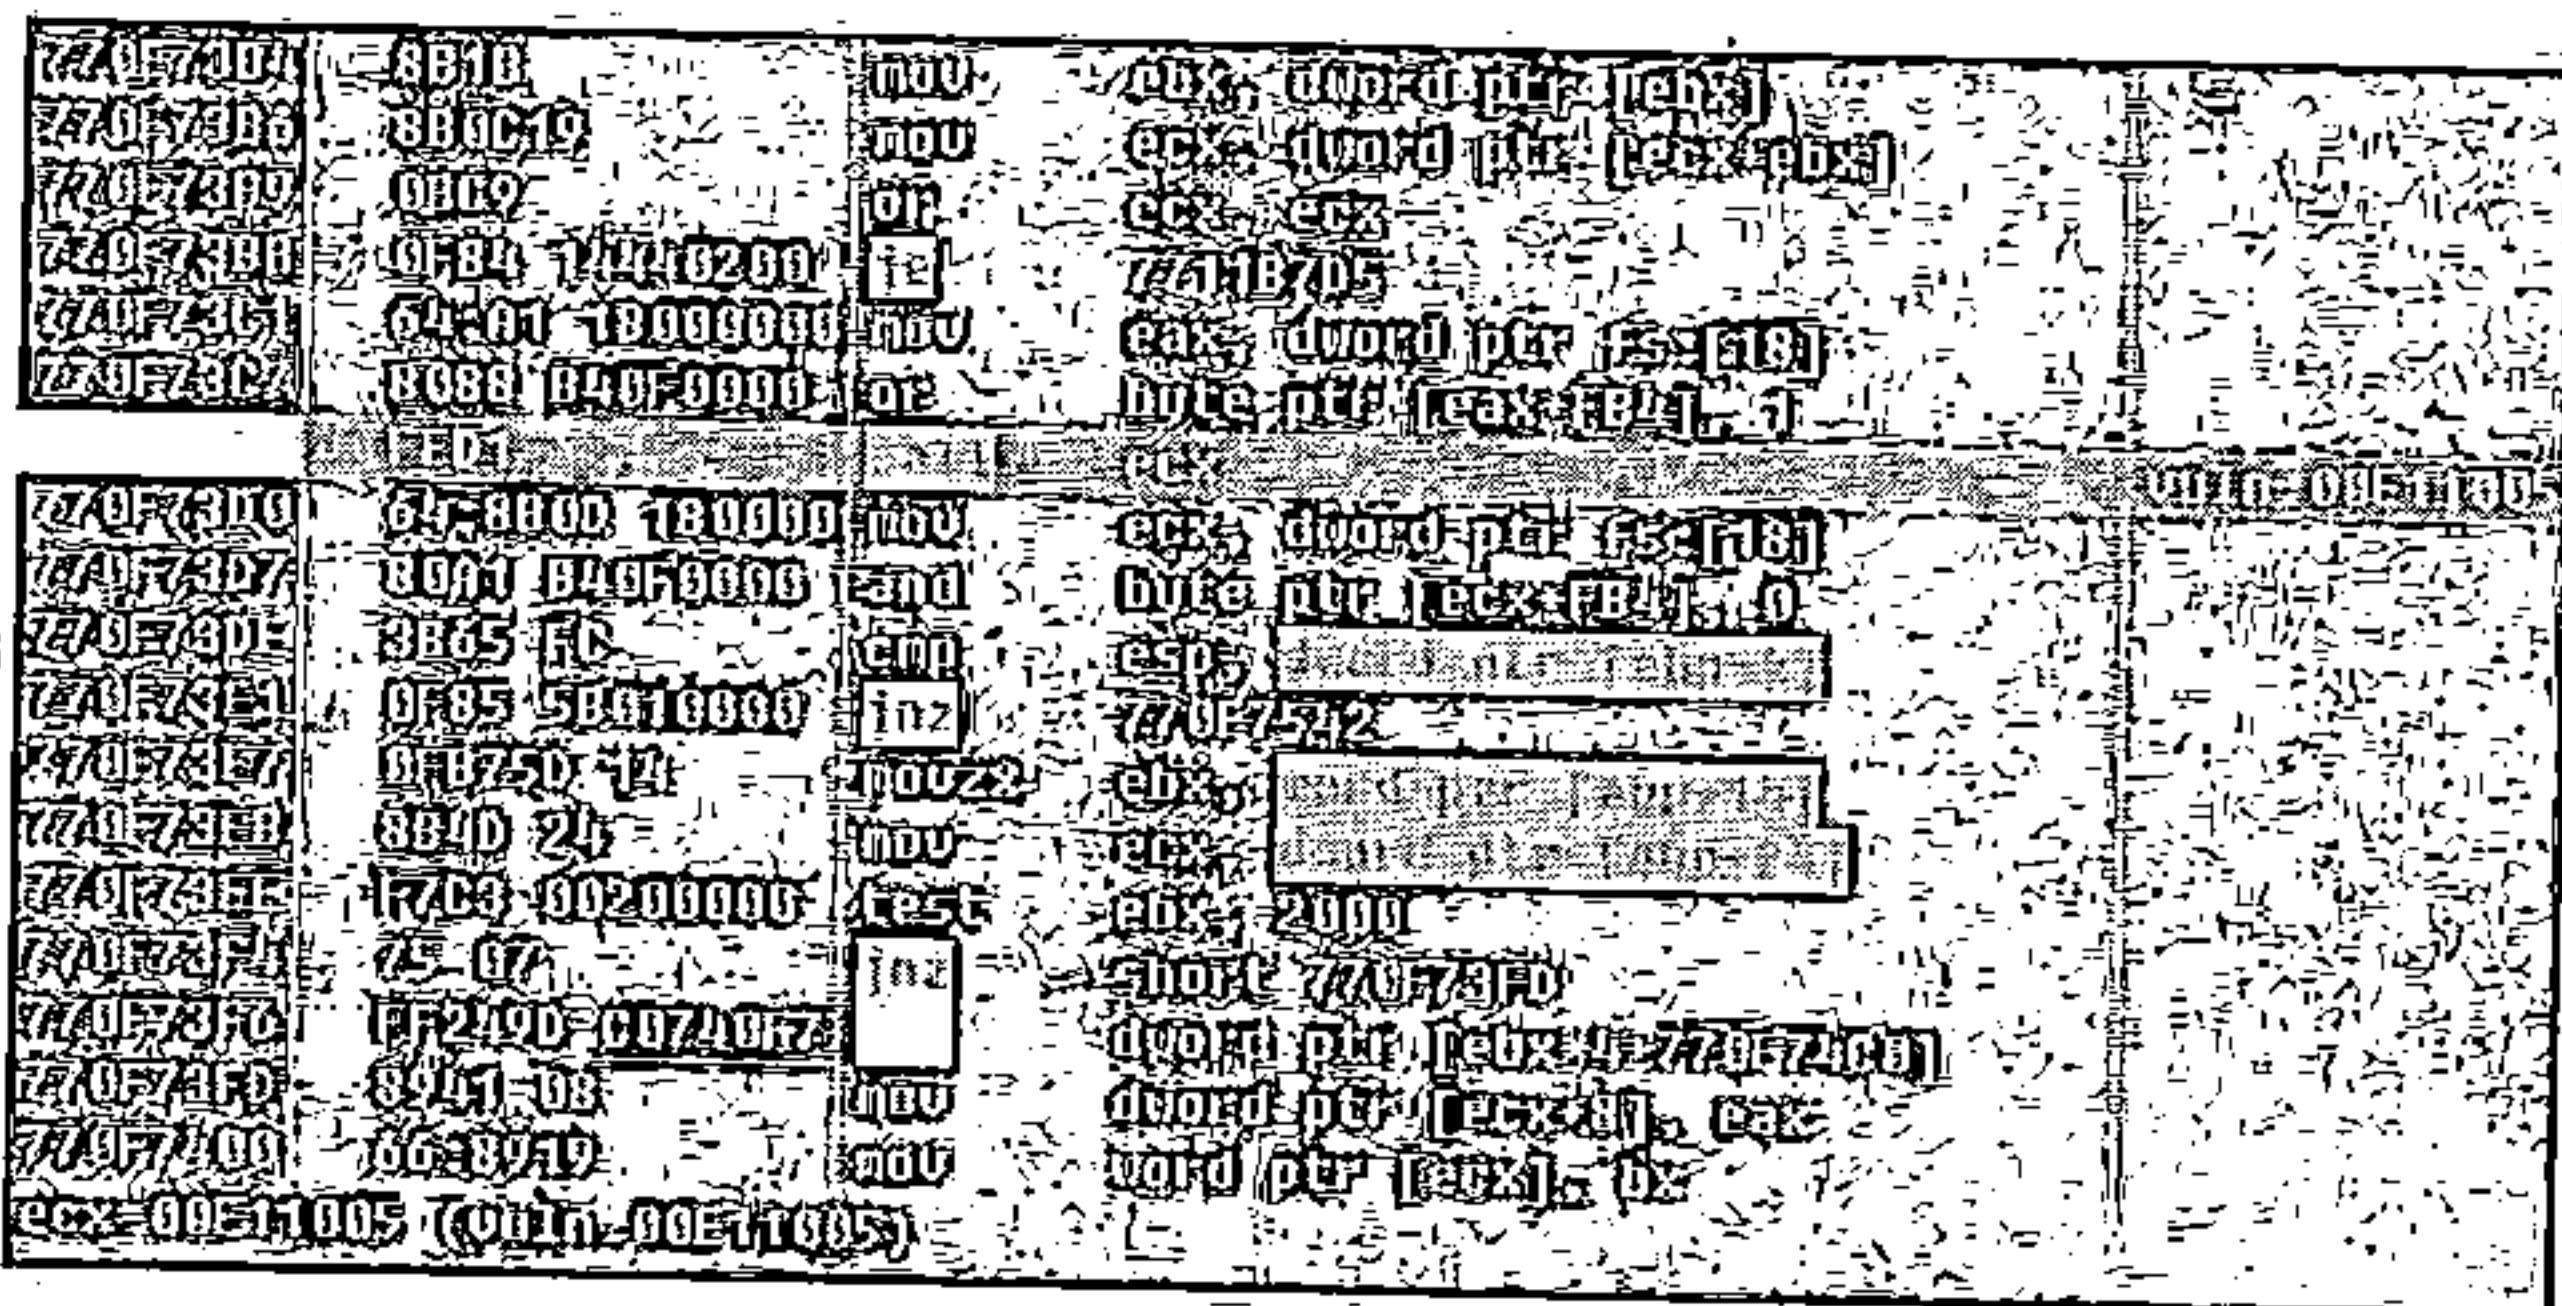 770F73B4 8B1B mov ebx, dword ptr [ebx]
770F73B6 8B0C19 mov ecx, dword ptr [ecx+ebx]
770F73B9 0BC9 or ecx, ecx
770F73BB 0F84 14440200 je 7711B7D5
770F73C1 64:A1 18000000 mov eax, dword ptr fs:[18]
770F73C7 8088 B40F0000 or byte ptr [eax+FB4], 1
FFD1 ecx vuln.00E11005
770F73D0 64:8B0D 180000 mov ecx, dword ptr fs:[18]
770F73D7 80A1 B40F0000 and byte ptr [ecx+FB4], 0
770F73DE 3B65 FC cmp esp,
770F73E1 0F85 5B010000 jnz 770F7542
770F73E7 0FB75D 14 movzx ebx,
770F73EB 8B4D 24 mov ecx,
770F73EE F7C3 00200000 test ebx, 2000
770F73F4 75 07 jnz short 770F73FD
770F73F6 FF249D C0740F77 dword ptr [ebx*4+770F74C0]
770F73FD 8941 08 mov dword ptr [ecx+8], eax
770F7400 66:8919 mov word ptr [ecx], bx
ecx=00E11005 (vuln.00E11005)